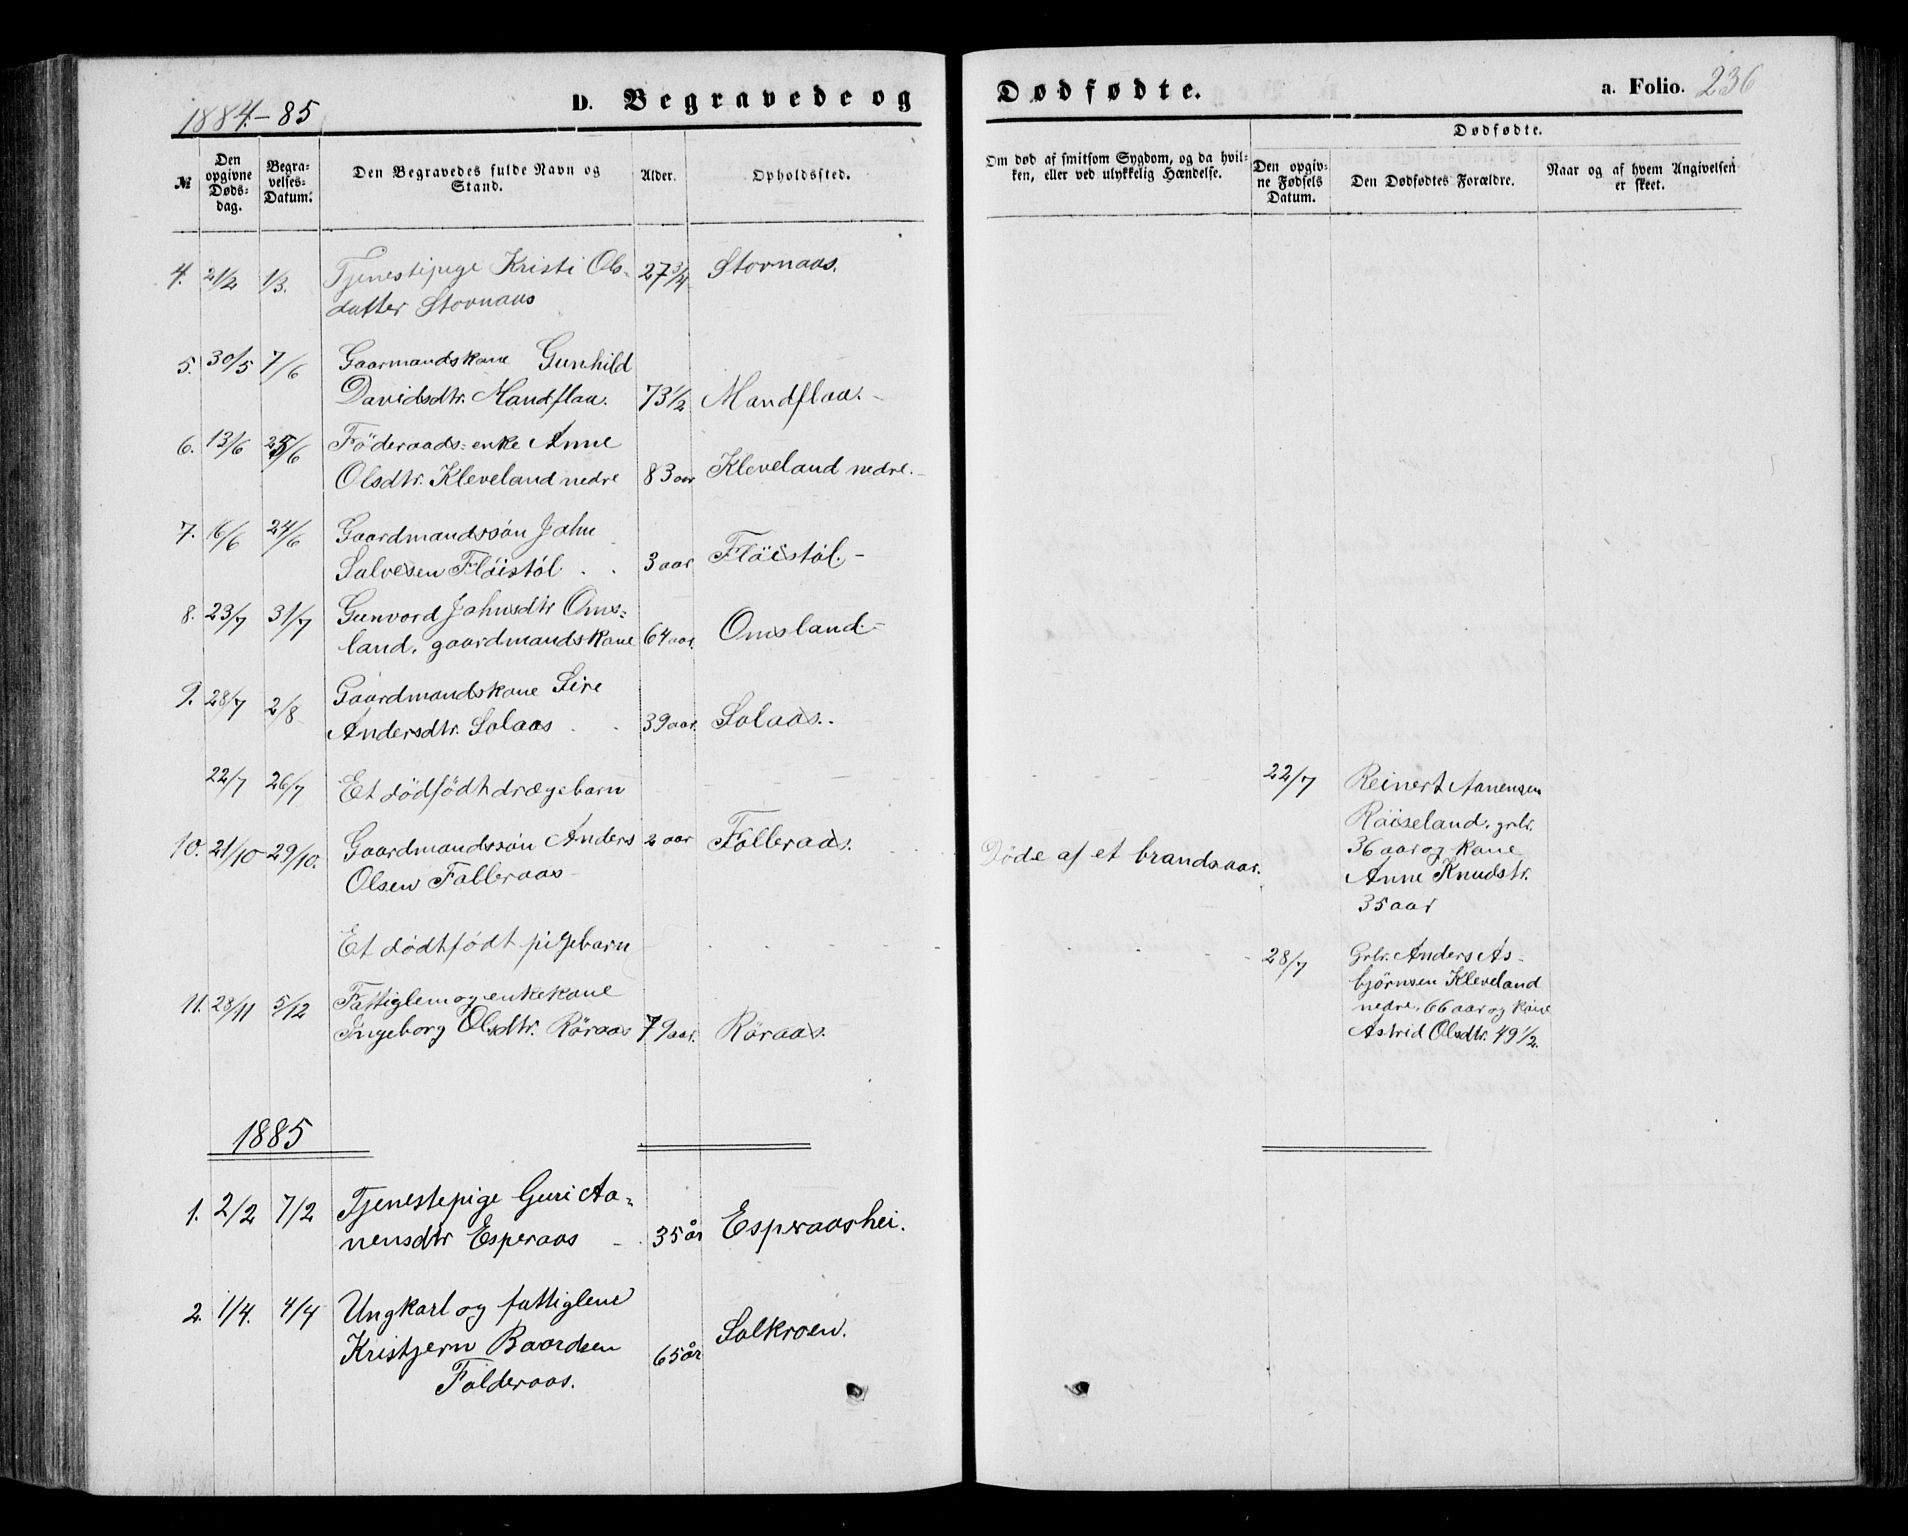 1884.-85
D. Begravede og Dødfødte.
a. Folio. 236
№
Den opgivne Døds-dag.
Begra-velses-Datum.
Den Begravedes fulde Navn og Stand.
Alder.
Opholdssted.
Om død af smitsom Sygdom, og da hvil-ken, eller ved ulykkelig Hændelse.
Dødfødte.
Den opgiv-ne Fødsels Datum.
Den Dødfødtes Forældre.
Naar og af hvem Angivelsen er skeet.
4. 21/2 1/3. Tjenestepige Kristi Ols- 27 3/4 Stovnaas.
datter Stovnaas
5. 30/5 7/6 Gaarmandskone Gunhild
Davidsdtr. Mandflaa. 73 1/2 Mandflaa.-
6. 13/6 25/6 Föderaads-enke Anne
Olsdtr. Kleveland nedre 83 aar Kleveland nedre.-
7. 16/6 24/6 Gaardmandssön Jahn
Salvesen Flöistöl . . 3 aar Flöistöl.-
8. 23/7 31/7 Gunvord Jahnsdtr Oms-
land, gaardmandskone 64 aar. Omsland.-
9. 28/7 2/8 Gaardmandskone Sire
Andersdtr. Solaas . . 39 aar. Solaas.
22/7 26/7 Et dödfödt drægebarn
22/7 Reinert Aanensen
Röiseland, grbr.
36 aar og kone
Anne Knudstr.
35 aar
10. 21/10 29/10. Gaardmandssön Anders 2 aar Folleraas.
Olsen Folleraas-
Döde af et brandsaar.
Et dödtfödt pigebarn
28/7 Grbr. Anders As-
björnsen Kleveland
nedre, 66 aar og kone
Astrid Olsdtr. 49 1/2.
11. 28/11 5/12 Fattiglem og enkekone
Ingeborg Olsdtr. Röraas 79 aar. Röraas.
1885
1. 2/2 7/2 Tjenestepige Guri Aa-
nensdtr Esperaas - . 35 år Esperaashei.
2. 1/4. 4/4 Ungkarl og fattiglem
Kristjern Baardsen 65 år Solkroen.
Folderaas.